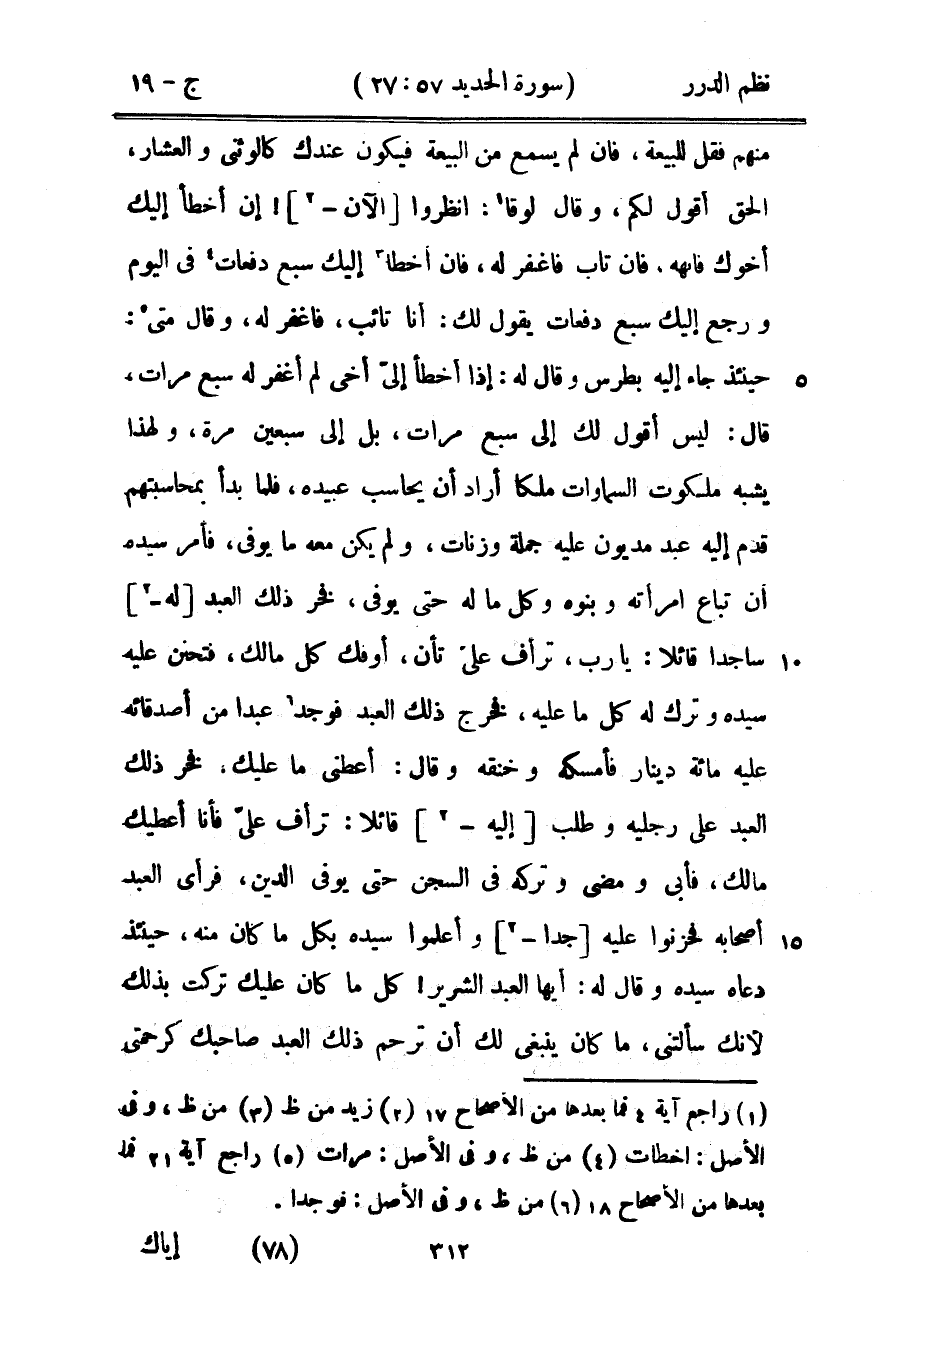 نظم الدرر (سورة الحديد ٥٧ : ٢٧) ج – ١٩
منهم فقل للبيعة ، فان لم يسمع من البيعة فيكون عندك كالوثنى و العشار ،
الحق أقول لكم ، و قال لوقا١ : انظروا [ الآن – ٢ ] ! إن أخطأ إليك
أخوك فانهه . فان تاب فاغفر له ، فان أخطا٣ إليك سبع دفعات٤ فى اليوم
و رجع إليك سبع دفعات يقول لك : أنا تائب ، فاغفر له ، و قال متى٥ :
٥ حينئذ جاء إليه بطرس و قال له : إذا أخطأ إلىّ أخى لم أغفر له سبع مرات ،
قال : ليس أقول لك إلى سبع مرات ، بل إلى سبعين مرة ، و لهذا
يشبه ملكوت السماوات ملكا أراد أن يحاسب عبيده ، فلما بدأ بمحاسبتهم
قدم إليه عبد مديون عليه جملة وزنات ، و لم يكن معه ما يوفى ، فأمر سيده
أن تباع امرأته و بنوه و كل ما له حتى يوفى ، فخر ذلك العبد [ له – ٢ ]
١٠ ساجدا قائلا : يا رب ، ترأف علىّ تأن ، أوفك كل مالك ، فتحنن عليه
سيده و ترك له كل ما عليه ، فخرج ذلك العبد فوجد٦ عبدا من أصدقائه
عليه مائة دينار فأمسكه و خنقه و قال : أعطنى ما عليك ، فخر ذلك
العبد على رجليه و طلب [ إليه – ٢ ] قائلا : ترأف علىّ فأنا أعطيك
مالك ، فأبى و مضى و تركه فى السجن حتى يوفى الدين ، فرأى العبد
١٥ أصحابه فحزنوا عليه [ جدا – ٢ ] و أعلموا سيده بكل ما كان منه ، حينئذ
دعاه سيده و قال له : أيها العبد الشرير ! كل ما كان عليك تركت بذلك
لأنك سألتنى ، ما كان ينبغى لك أن ترحم ذلك العبد صاحبك كرحمتى
(١) راجع آية ٤ فما بعدها من الأصحاح ١٧ (٢) زيد من ظ (٣) من ظ ، و فى
الأصل : اخطات (٤) من ظ ، و فى الأصل : مرات (٥) راجع آية ٢١ فما
بعدها من الأصحاح ١٨ (٦) من ظ ، و فى الأصل : فوجدا .
٣١٢ (٧٨) إياك